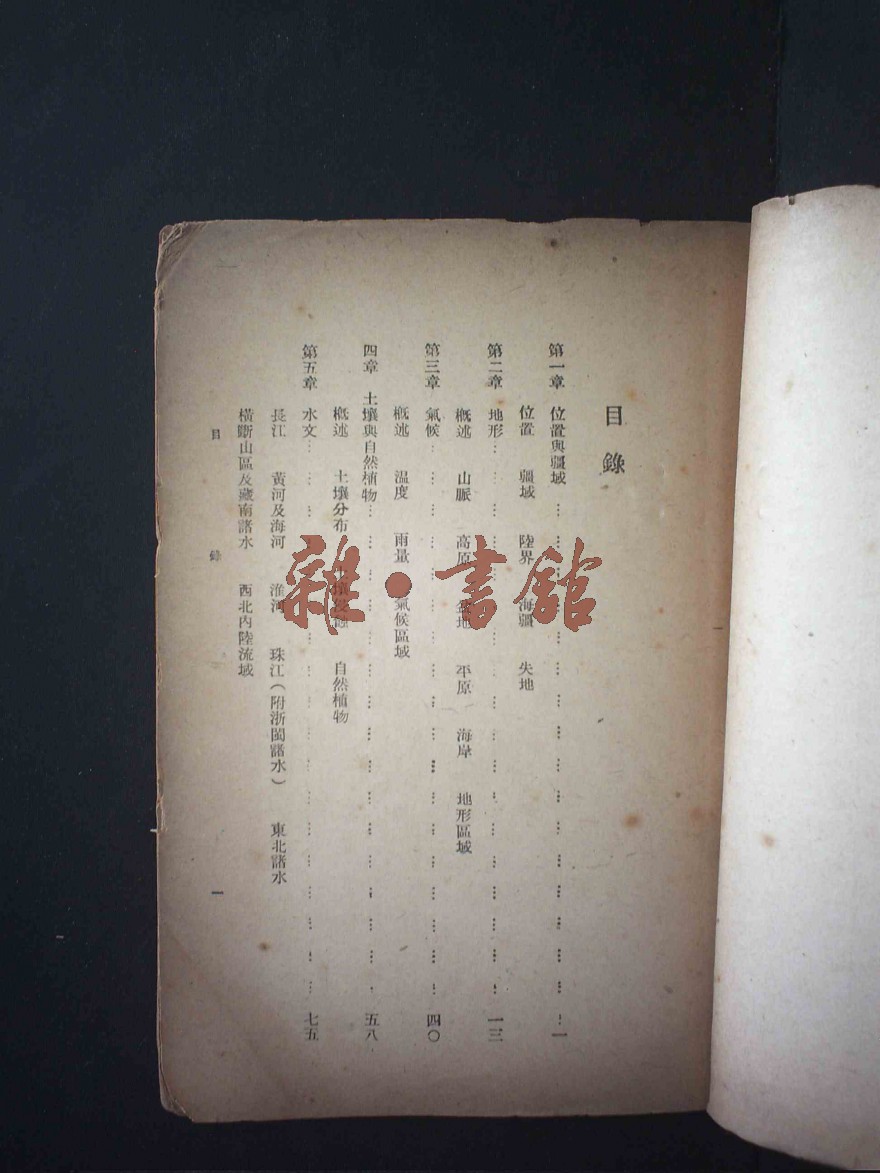 目錄
第一章 位置與疆域……一
位置 疆域 陸界 海疆 失地
第二章 地形……一三
概述 山脈 高原 盆地 平原 海岸 地形區域
第三章 氣候……四〇
概述 溫度 雨量 氣候區域
四章 土壤與自然植物……五八
概述 土壤分布 土壤浸蝕 自然植物
第五章 水文……七五
長江 黃河及海河 淮河 珠江(附浙閩諸水) 東北諸水
橫斷山區及藏南諸水 西北內陸流域
目錄 一
雜·書館